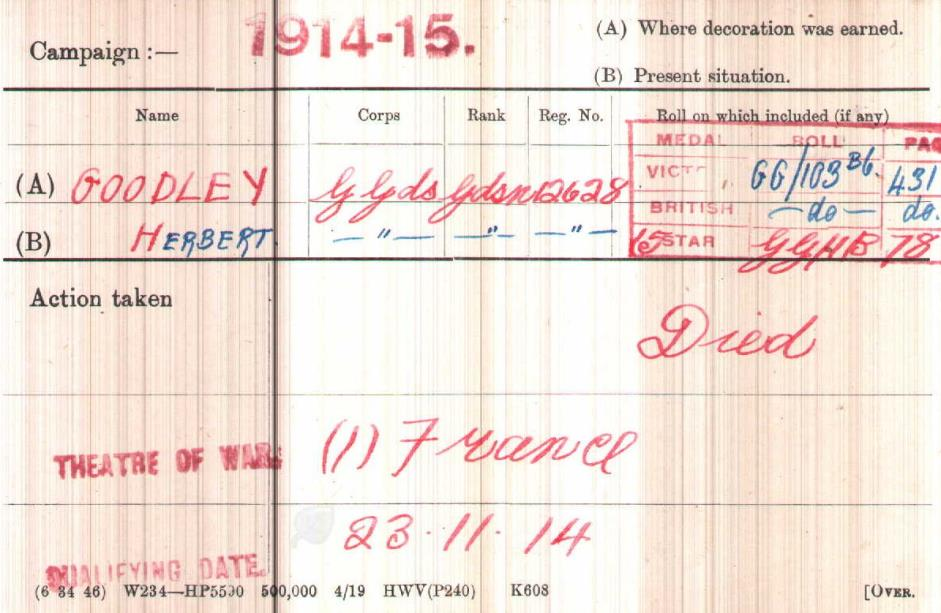 Campaign :— 1914-15.
(A) Where decoration was earned.
(B) Present situation.
Name Corps Rank Reg. No. Roll on which included (if any)
MEDAL ROLL PAG
(A) GOODLEY G Gds Gdsn 12628
VICT GG/103 B6. 431
BRITISH —do— do.
(B) HERBERT —"— —"— —"—
15 STAR GG/1B 78
Action taken
Died
THEATRE OF WAR. (1) France
QUALIFYING DATE. 23.11.14
(6 34 46) W234—HP5590 500,000 4/19 HWV(P240) K608 [OVER.